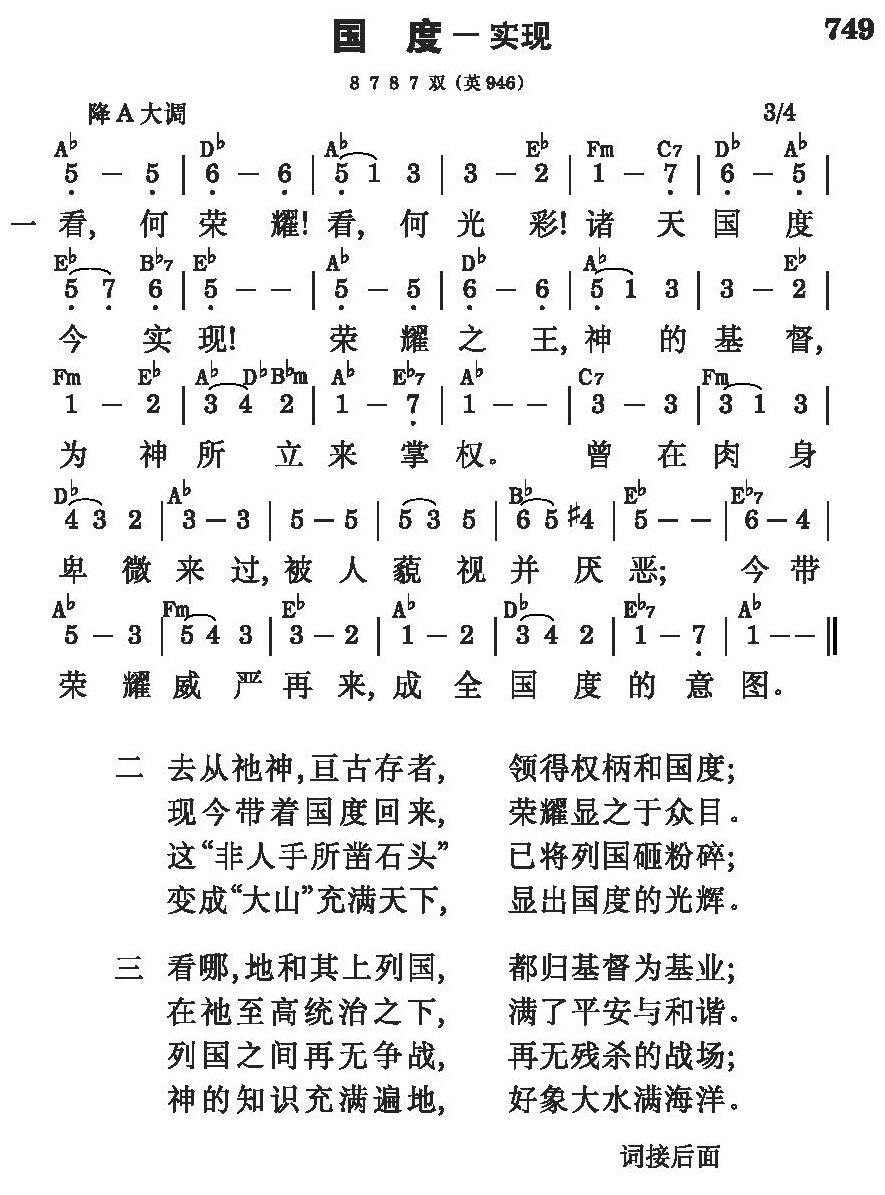 国 度－实现 749
8 7 8 7 双（英946）
降A大调 3/4
A♭ D♭ A♭ E♭ Fm C7 D♭ A♭
5̣ － 5̣ | 6̣ － 6̣ | 5̣ 1 3 | 3 － 2 | 1 － 7̣ | 6̣ － 5̣ |
一 看，何荣耀！看，何光彩！诸天国度
E♭ B♭7 E♭ A♭ D♭ A♭ E♭
5̣ 7̣ 6̣ | 5̣ － － | 5̣ － 5̣ | 6̣ － 6̣ | 5̣ 1 3 | 3 － 2 |
今实现！荣耀之王，神的基督，
Fm E♭ A♭ D♭ B♭m A♭ E♭7 A♭ C7 Fm
1 － 2 | 3 4 2 | 1 － 7̣ | 1 － － | 3 － 3 | 3 1 3 |
为神所立来掌权。曾在肉身
D♭ A♭ B♭ E♭ E♭7
4 3 2 | 3 － 3 | 5 － 5 | 5 3 5 | 6 5 ♯4 | 5 － － | 6 － 4 |
卑微来过，被人藐视并厌恶；今带
A♭ Fm E♭ A♭ D♭ E♭7 A♭
5 － 3 | 5 4 3 | 3 － 2 | 1 － 2 | 3 4 2 | 1 － 7̣ | 1 － － ‖
荣耀威严再来，成全国度的意图。
二 去从祂神，亘古存者， 领得权柄和国度；
现今带着国度回来， 荣耀显之于众目。
这“非人手所凿石头” 已将列国砸粉碎；
变成“大山”充满天下， 显出国度的光辉。
三 看哪，地和其上列国， 都归基督为基业；
在祂至高统治之下， 满了平安与和谐。
列国之间再无争战， 再无残杀的战场；
神的知识充满遍地， 好象大水满海洋。
词接后面